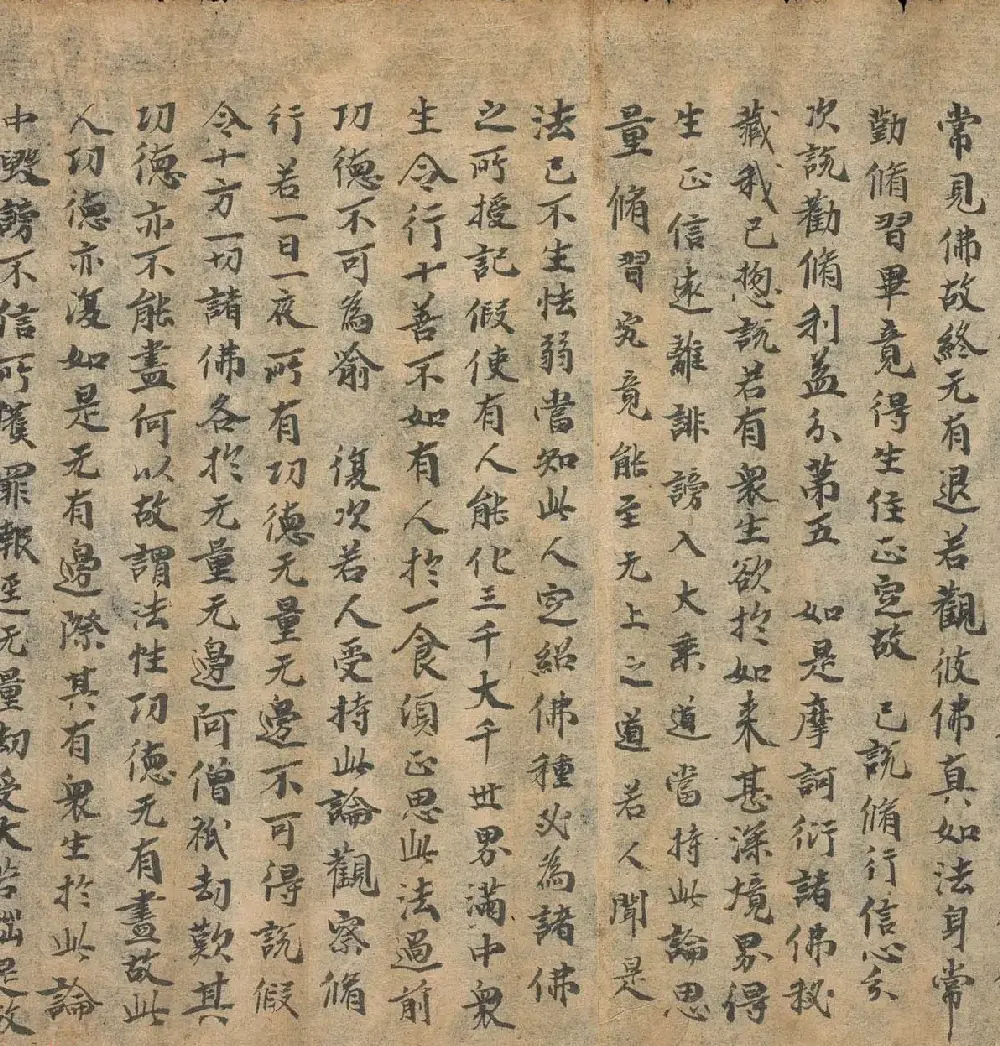 常見佛故終无有退若觀彼佛真如法身常
勤脩習畢竟得生住正㝎故 已說脩行信心分
次說勸脩利益分第五 如是摩訶衍諸佛秘
藏我已揔說若有衆生欲於如来甚深境界得
生正信遠離誹謗入大乗道當持此論思
量脩習究竟能至无上之道若人聞是
法已不生怯弱當知此人㝎紹佛種必為諸佛
之所授記假使有人能化三千大千世界滿中衆
生令行十善不如有人於一食湏正思此法過前
功德不可為喻 復次若人受持此論觀察脩
行若一日一夜所有功德无量无邊不可得說假
令十方一切諸佛各於无量无邊阿僧祇劫歎其
功德亦不能盡何以故謂法性功德无有盡故此
人功德亦復如是无有邊際其有衆生於此論
中毀謗不信所獲罪報逕无量劫受大苦惱是故